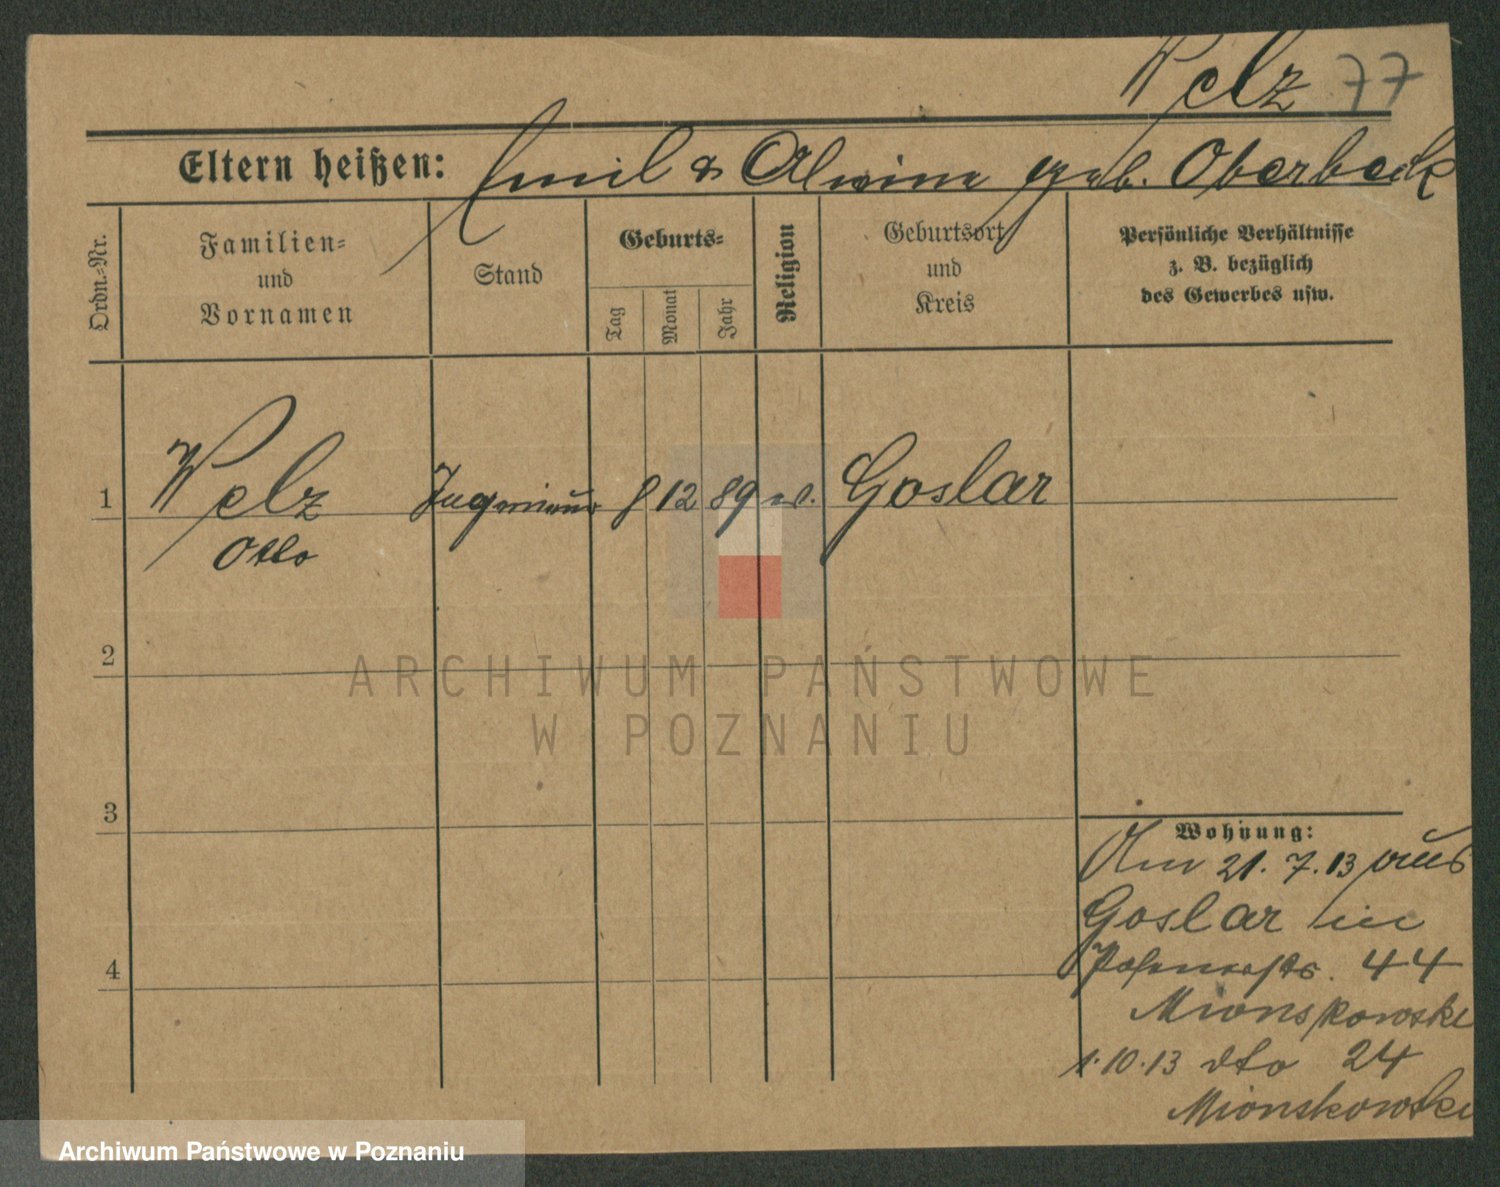 Welz 77
Eltern heißen: Emil & Alwine geb. Oberbeck
Ordn.-Nr.
Familien-
und
Vornamen
Stand
Geburts-
Tag
Monat
Jahr
Religion
Geburtsort
und
Kreis
Persönliche Verhältnisse
z. B. bezüglich
des Gewerbes usw.
1 Welz Ingenieur 8 12 89 ev. Goslar
Otto
2
ARCHIWUM PAŃSTWOWE
W POZNANIU
3
Wohnung:
Am 21. 7. 13 aus
Goslar in
4
Posenerstr. 44
Mionskowski
1.10.13 dto 24
Mionskowski
Archiwum Państwowe w Poznaniu